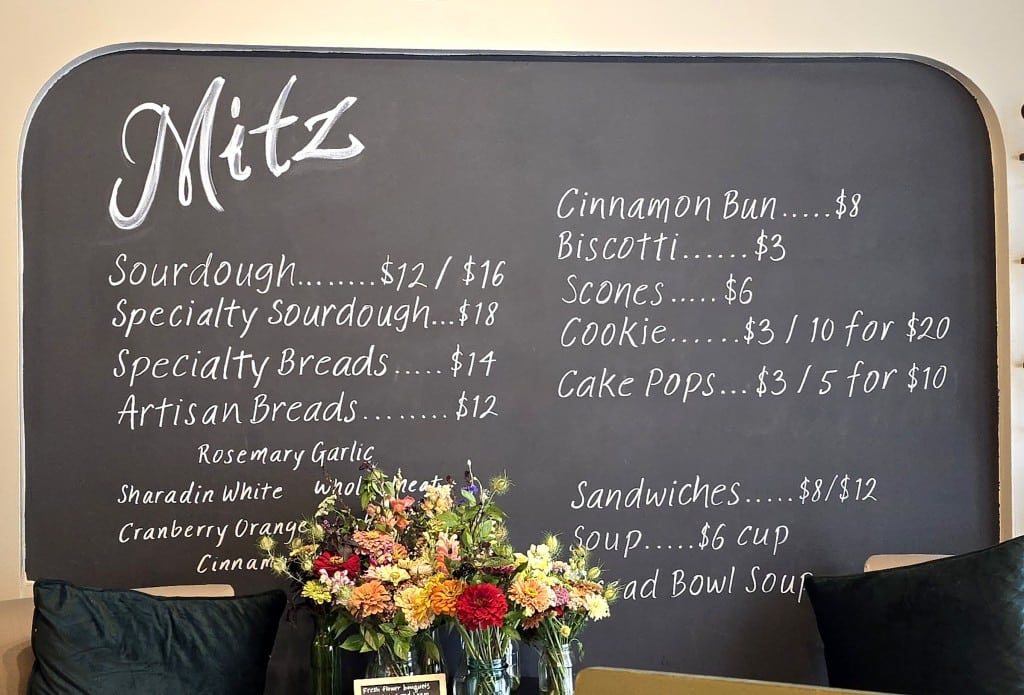 Mitz
Sourdough........$12 / $16
Specialty Sourdough...$18
Specialty Breads.....$14
Artisan Breads.........$12
Rosemary Garlic
Sharadin White
Cranberry Orange
Cinnamon Bun.....$8
Biscotti......$3
Scones.....$6
Cookie.......$3 / 10 for $20
Cake Pops...$3 / 5 for $10
Sandwiches.....$8/$12
Soup.....$6 cup
Bowl Soup
Fresh flower bouquets